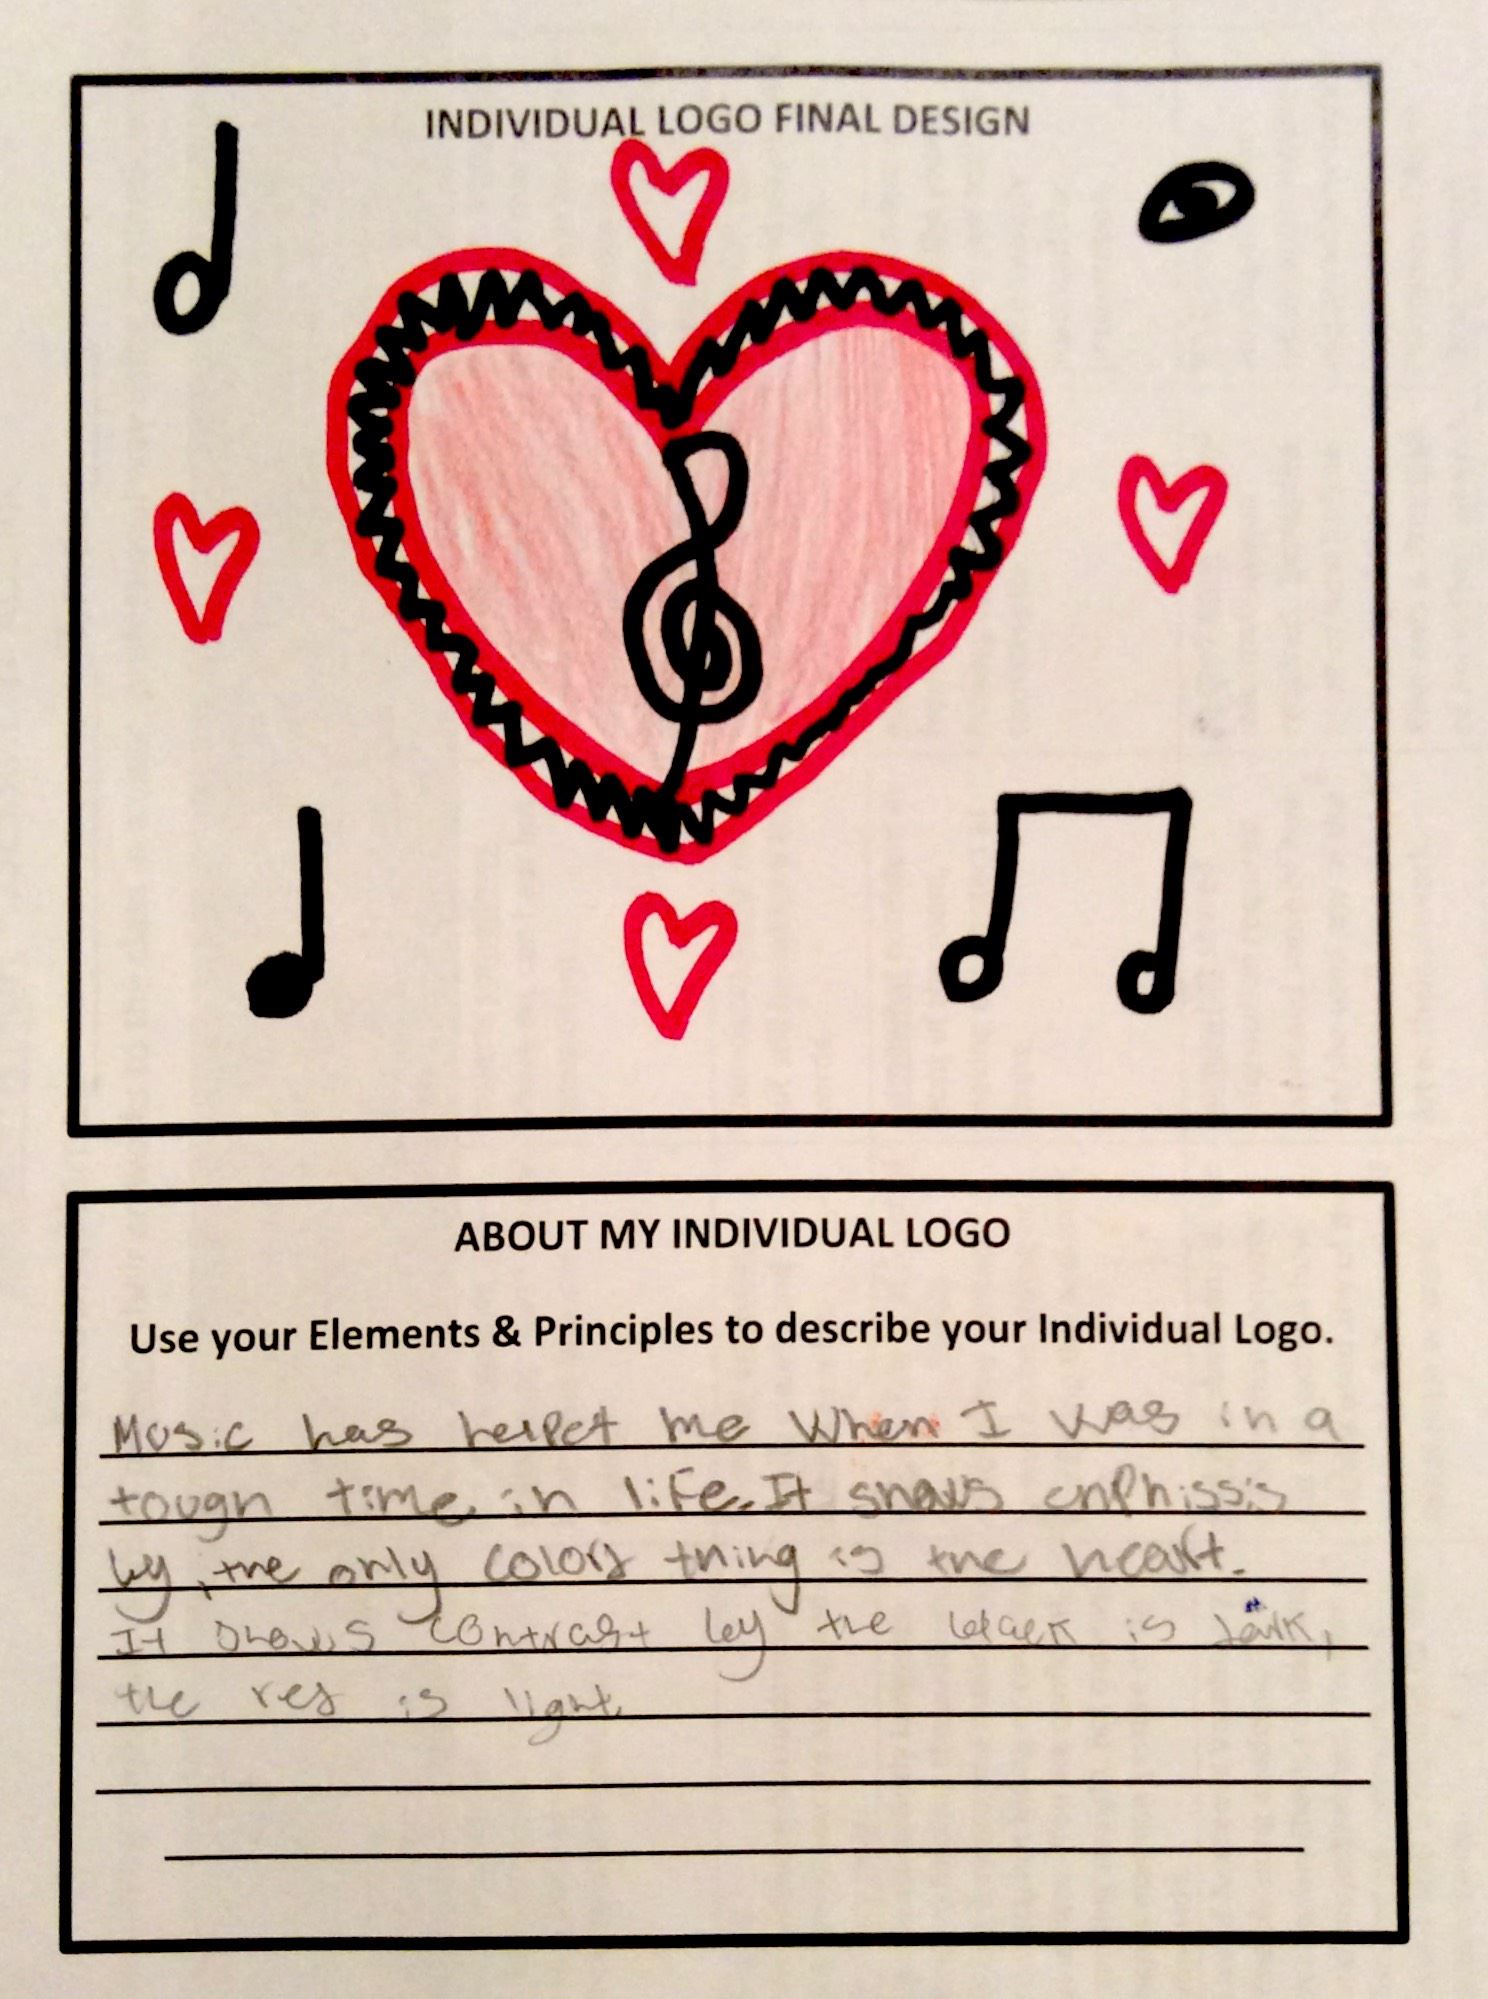 INDIVIDUAL LOGO FINAL DESIGN
ABOUT MY INDIVIDUAL LOGO
Use your Elements & Principles to describe your Individual Logo.
Music has helpet me when I was in a
tough time in life. It shows enphissis
by, the only colors thing is the heart.
It shows contrast by the black is dark,
the red is light